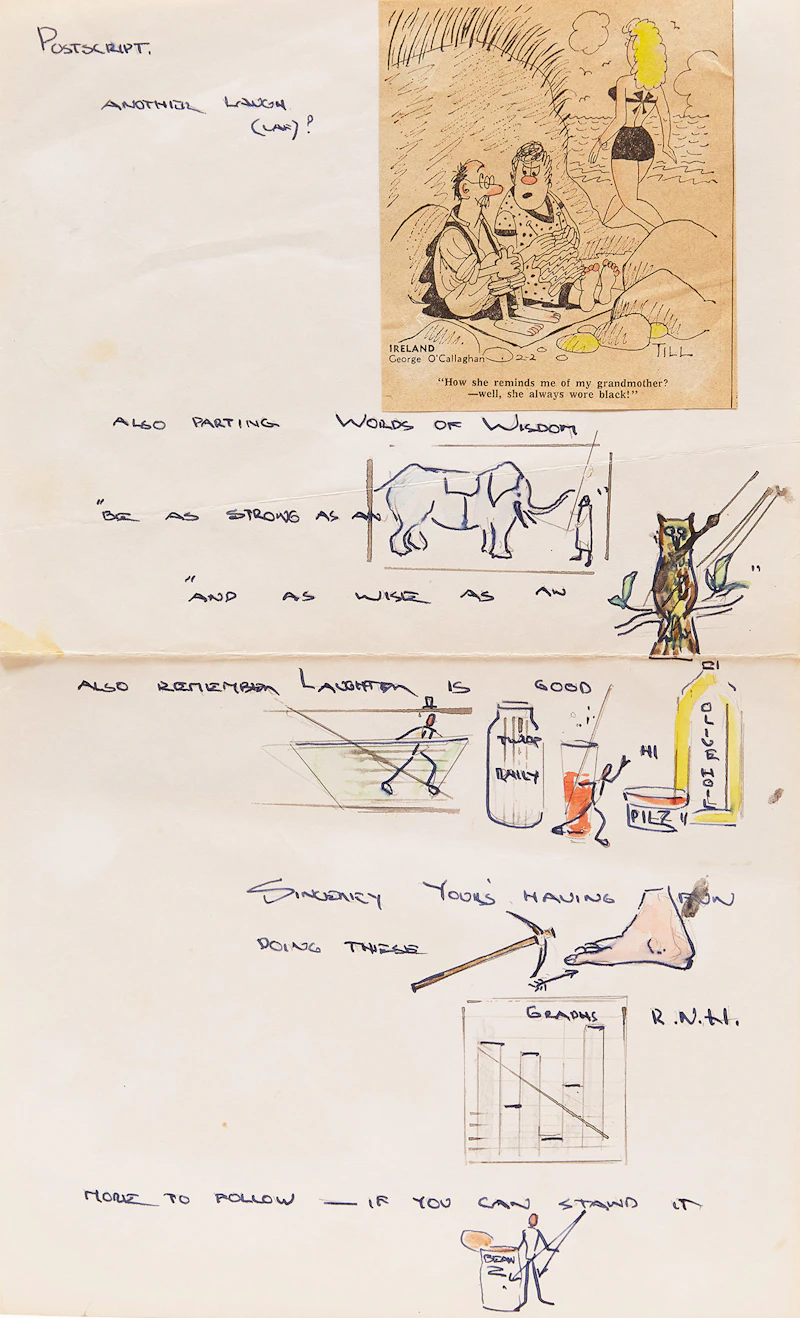 POSTSCRIPT.
ANOTHER LAUGH
(LAF)?
IRELAND
George O'Callaghan 2-2
TILL
"How she reminds me of my grandmother?
—well, she always wore black!"
ALSO PARTING WORDS OF WISDOM
"BE AS STRONG AS AN "
"AND AS WISE AS AN "
ALSO REMEMBER LAUGHTER IS GOOD
DAILY
HI
PILZ
OLIVE HOIL
SINCERLY YOURS HAVING FUN
DOING THESE
GRAPHS
R.N.H.
MORE TO FOLLOW — IF YOU CAN STAND IT
BEAN
Z